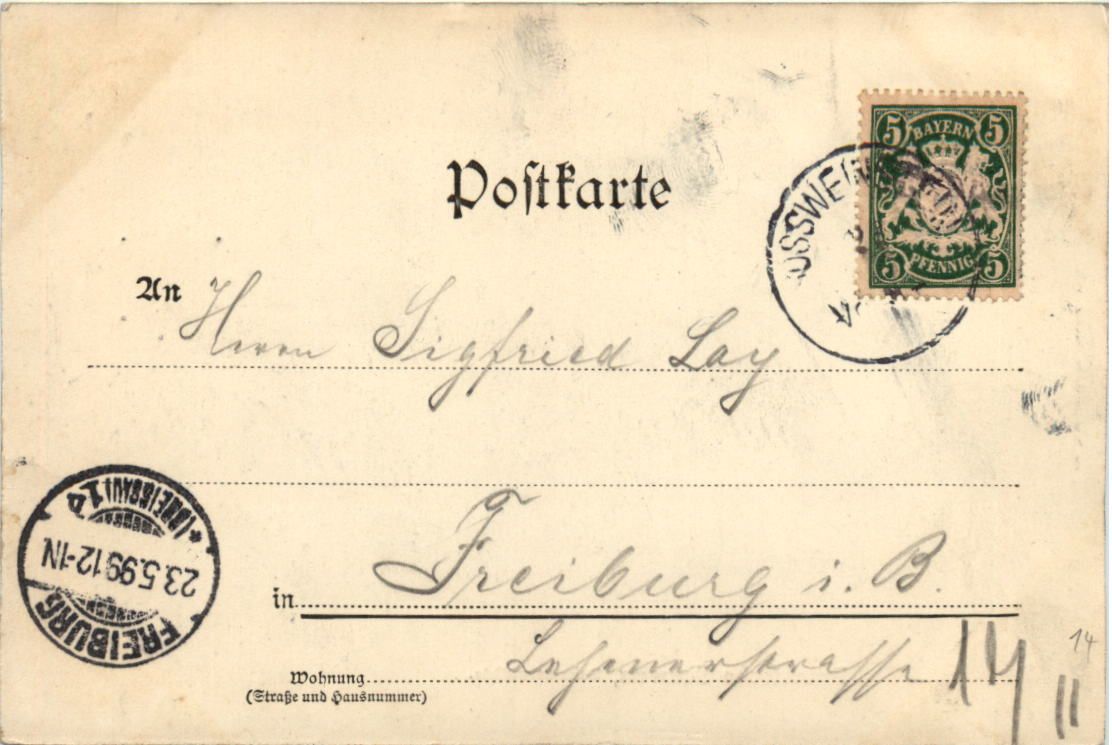 Postkarte
5 BAYERN 5
5 PFENNIG 5
An Herrn Sigfried Lay
in Freiburg i. B.
Wohnung
(Straße und Hausnummer)
Lehenerstrasse 14
14
II
FREIBURG
23.5.99.12-1N
*(BREISGAU)1d